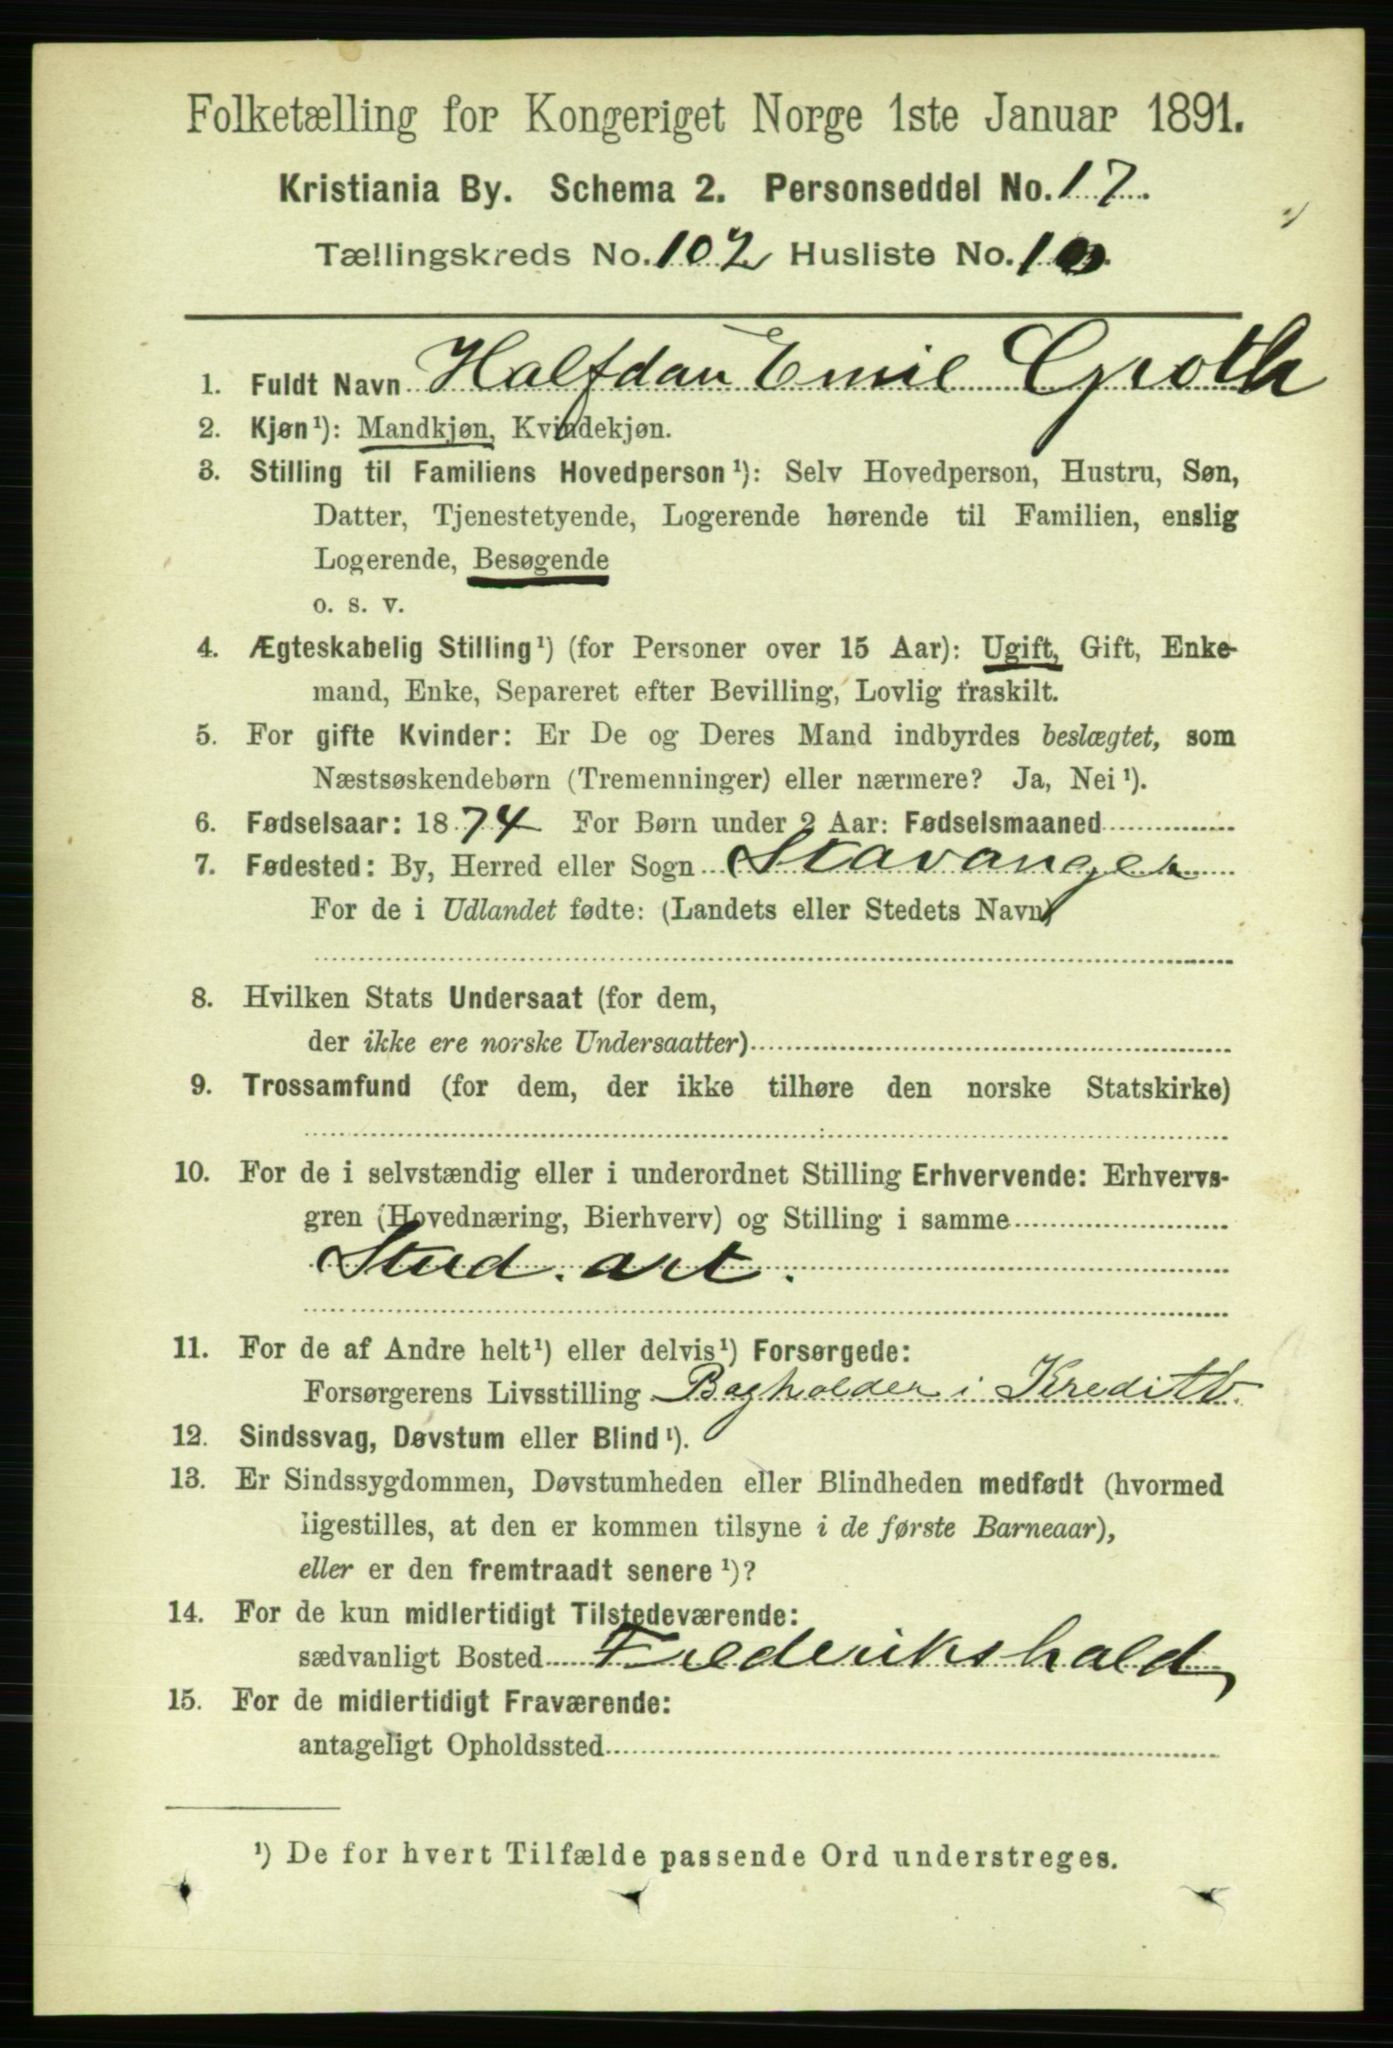 Folketælling for Kongeriget Norge 1ste Januar 1891.
Kristiania By. Schema 2. Personseddel No. 17.
Tællingskreds No. 102 Husliste No. 10.
1. Fuldt Navn Halfdan Emil Groth
2. Kjøn¹): Mandkjøn, Kvindekjøn.
3. Stilling til Familiens Hovedperson¹): Selv Hovedperson, Hustru, Søn,
Datter, Tjenestetyende, Logerende hørende til Familien, enslig
Logerende, Besøgende
o. s. v.
4. Ægteskabelig Stilling¹) (for Personer over 15 Aar): Ugift, Gift, Enke-
mand, Enke, Separeret efter Bevilling, Lovlig fraskilt.
5. For gifte Kvinder: Er De og Deres Mand indbyrdes beslægtet, som
Næstsøskendebørn (Tremenninger) eller nærmere? Ja, Nei¹).
6. Fødselsaar: 1874 For Børn under 2 Aar: Fødselsmaaned
7. Fødested: By, Herred eller Sogn Stavanger
For de i Udlandet fødte: (Landets eller Stedets Navn)
8. Hvilken Stats Undersaat (for dem,
der ikke ere norske Undersaatter)
9. Trossamfund (for dem, der ikke tilhøre den norske Statskirke)
10. For de i selvstændig eller i underordnet Stilling Erhvervende: Erhvervs-
gren (Hovednæring, Bierhverv) og Stilling i samme
Stud. art.
11. For de af Andre helt¹) eller delvis¹) Forsørgede:
Forsørgerens Livsstilling Bogholder i Kreditb.
12. Sindssvag, Døvstum eller Blind¹).
13. Er Sindssygdommen, Døvstumheden eller Blindheden medfødt (hvormed
ligestilles, at den er kommen tilsyne i de første Barneaar),
eller er den fremtraadt senere¹)?
14. For de kun midlertidigt Tilstedeværende:
sædvanligt Bosted Frederikshald
15. For de midlertidigt Fraværende:
antageligt Opholdssted
¹) De for hvert Tilfælde passende Ord understreges.